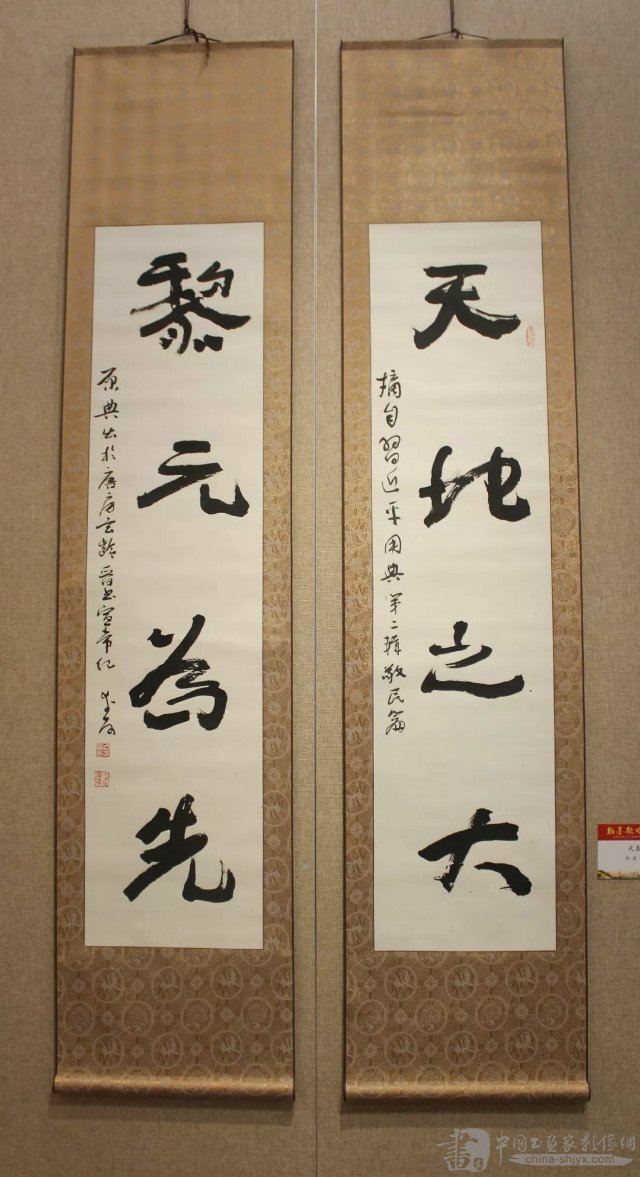 天地之大
摘自習近平用典第二輯敬民篇
黎元為先
原典出於唐房玄齡晉書宣帝紀
翰墨歌
中国书画家影像網
china-shjyx.com